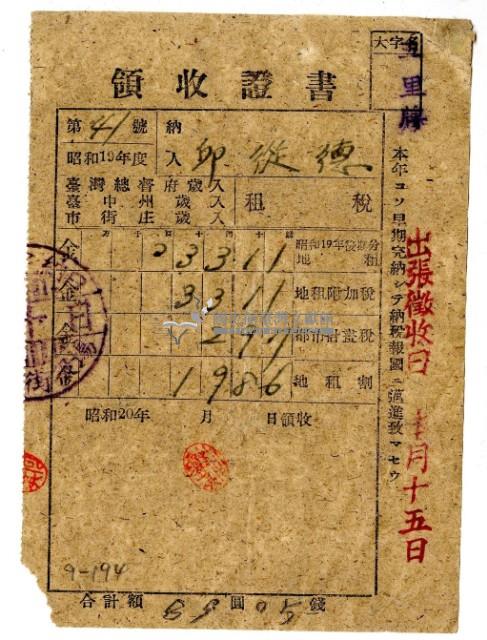 大字名
五里牌
領收證書
第41號
納入
昭和19年度
邱從德
臺灣總督府歲入
臺中州歲入
市街庄歲入
租稅
昭和19年後期分
地租
金 23311
地租附加稅
金 3311
都市計畫稅
金 299
地租割
金 1986
昭和20年 月 日領收
合計額 圓 錢
本年コソ早期完納シテ納稅報國ニ邁進致マセウ
出張徵收日
月十五日
9-194